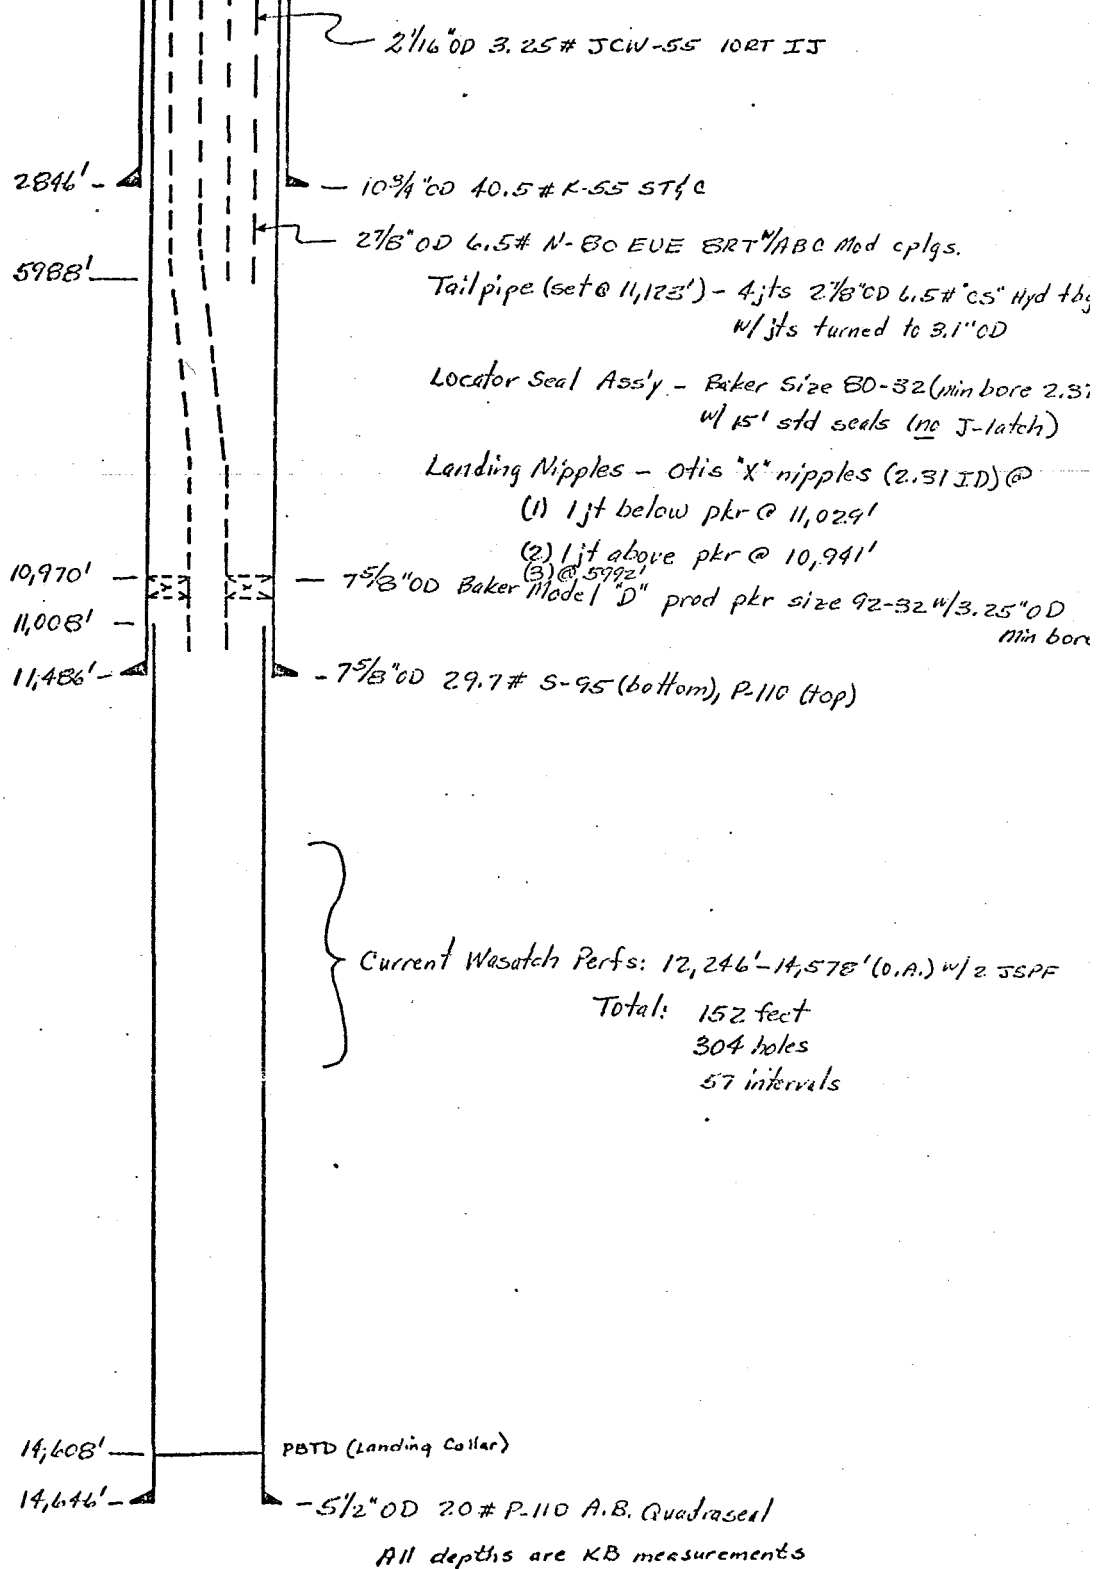 2 1/16" OD 3.25# JCW-55 10RT IJ
2846' - 10 3/4" OD 40.5# K-55 ST&C
2 7/8" OD 6.5# N-80 EUE 8RT w/ABC Mod cplgs.
5988'
Tailpipe (set @ 11,123') - 4 jts 2 7/8" OD 6.5# "CS" Hyd tbg
w/ jts turned to 3.1" OD
Locator Seal Ass'y - Baker Size 80-32 (min bore 2.3
w/ 15' std seals (no J-latch)
Landing Nipples - Otis "X" nipples (2.31 ID) @
(1) 1 jt below pkr @ 11,029'
(2) 1 jt above pkr @ 10,941'
(3) @ 5992'
10,970' - 7 5/8" OD Baker Model "D" prod pkr size 92-32 w/3.25" OD
min bore
11,008'
11,486' - 7 5/8" OD 29.7# S-95 (bottom), P-110 (top)
Current Wasatch Perfs: 12,246'-14,578' (O.A.) w/ 2 JSPF
Total: 152 feet
304 holes
57 intervals
14,608' PBTD (Landing Collar)
14,646' - 5 1/2" OD 20# P-110 A.B. Quadraseal
All depths are KB measurements